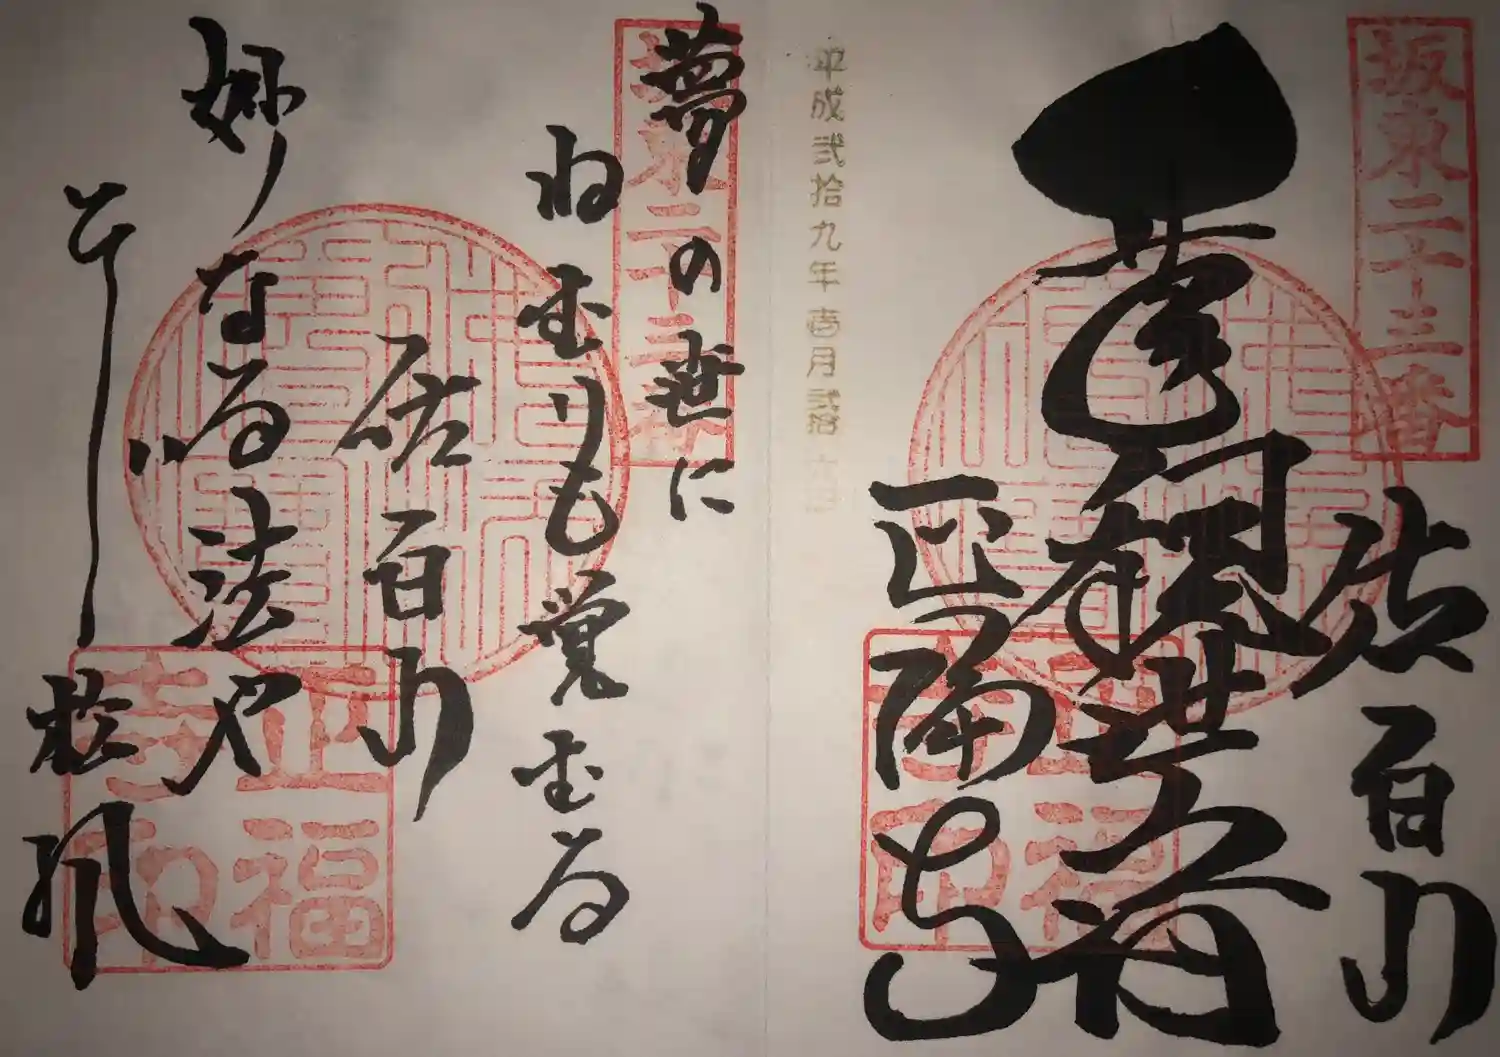 坂東二十三番
佐白山
観世音
正福寺
正福寺印
平成弐拾九年壱月弐拾六日
坂東二十三番
夢の世に
ねむりも覚むる
佐白山
妙なる法や
ひゞく松風
正福寺印